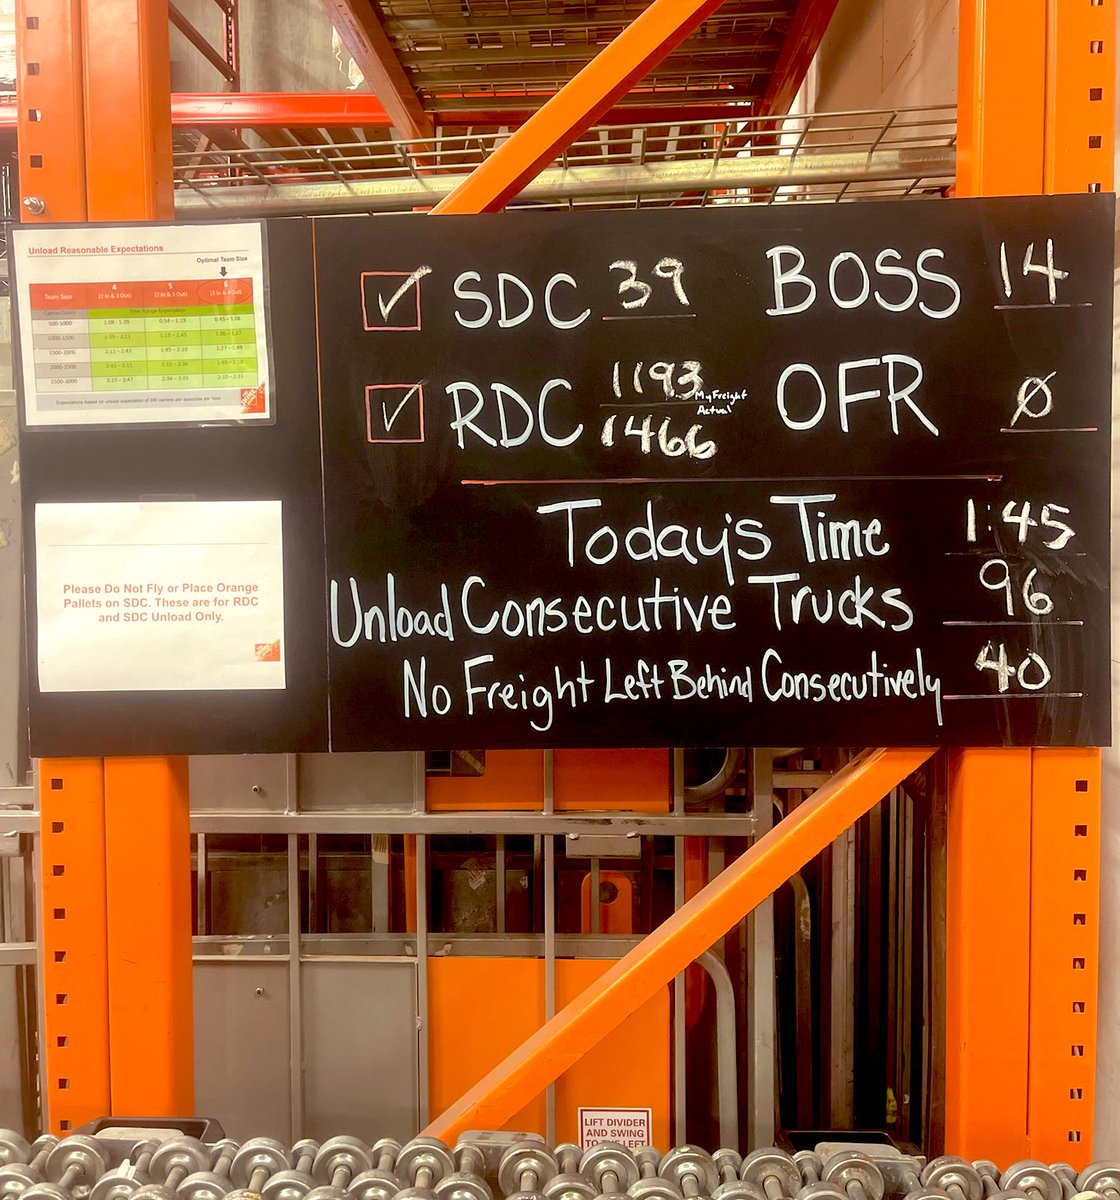 Unload Reasonable Expectations
Optimal Team Size
Team Size 4 5 6
(2 In & 2 Out) (2 In & 3 Out) (2 In & 4 Out)
Carton Count Time Range Expectation
500-1000 1:08 - 1:39 0:54 - 1:19 0:45 - 1:06
1000-1500 1:39 - 2:11 1:19 - 1:45 1:06 - 1:27
1500-2000 2:11 - 2:43 1:45 - 2:10 1:27 - 1:49
2000-2500 2:43 - 3:15 2:10 - 2:36 1:49 - 2:10
2500-3000 3:15 - 3:47 2:36 - 3:01 2:10 - 2:31
Expectations based on unload expectation of 240 cartons per associate per hour
Please Do Not Fly or Place Orange
Pallets on SDC. These are for RDC
and SDC Unload Only.
SDC 39 BOSS 14
RDC 1193 My Freight OFR Ø
1466 Actual
Today's Time 1:45
Unload Consecutive Trucks 96
No Freight Left Behind Consecutively 40
LIFT DIVIDER
AND SWING
TO THE LEFT